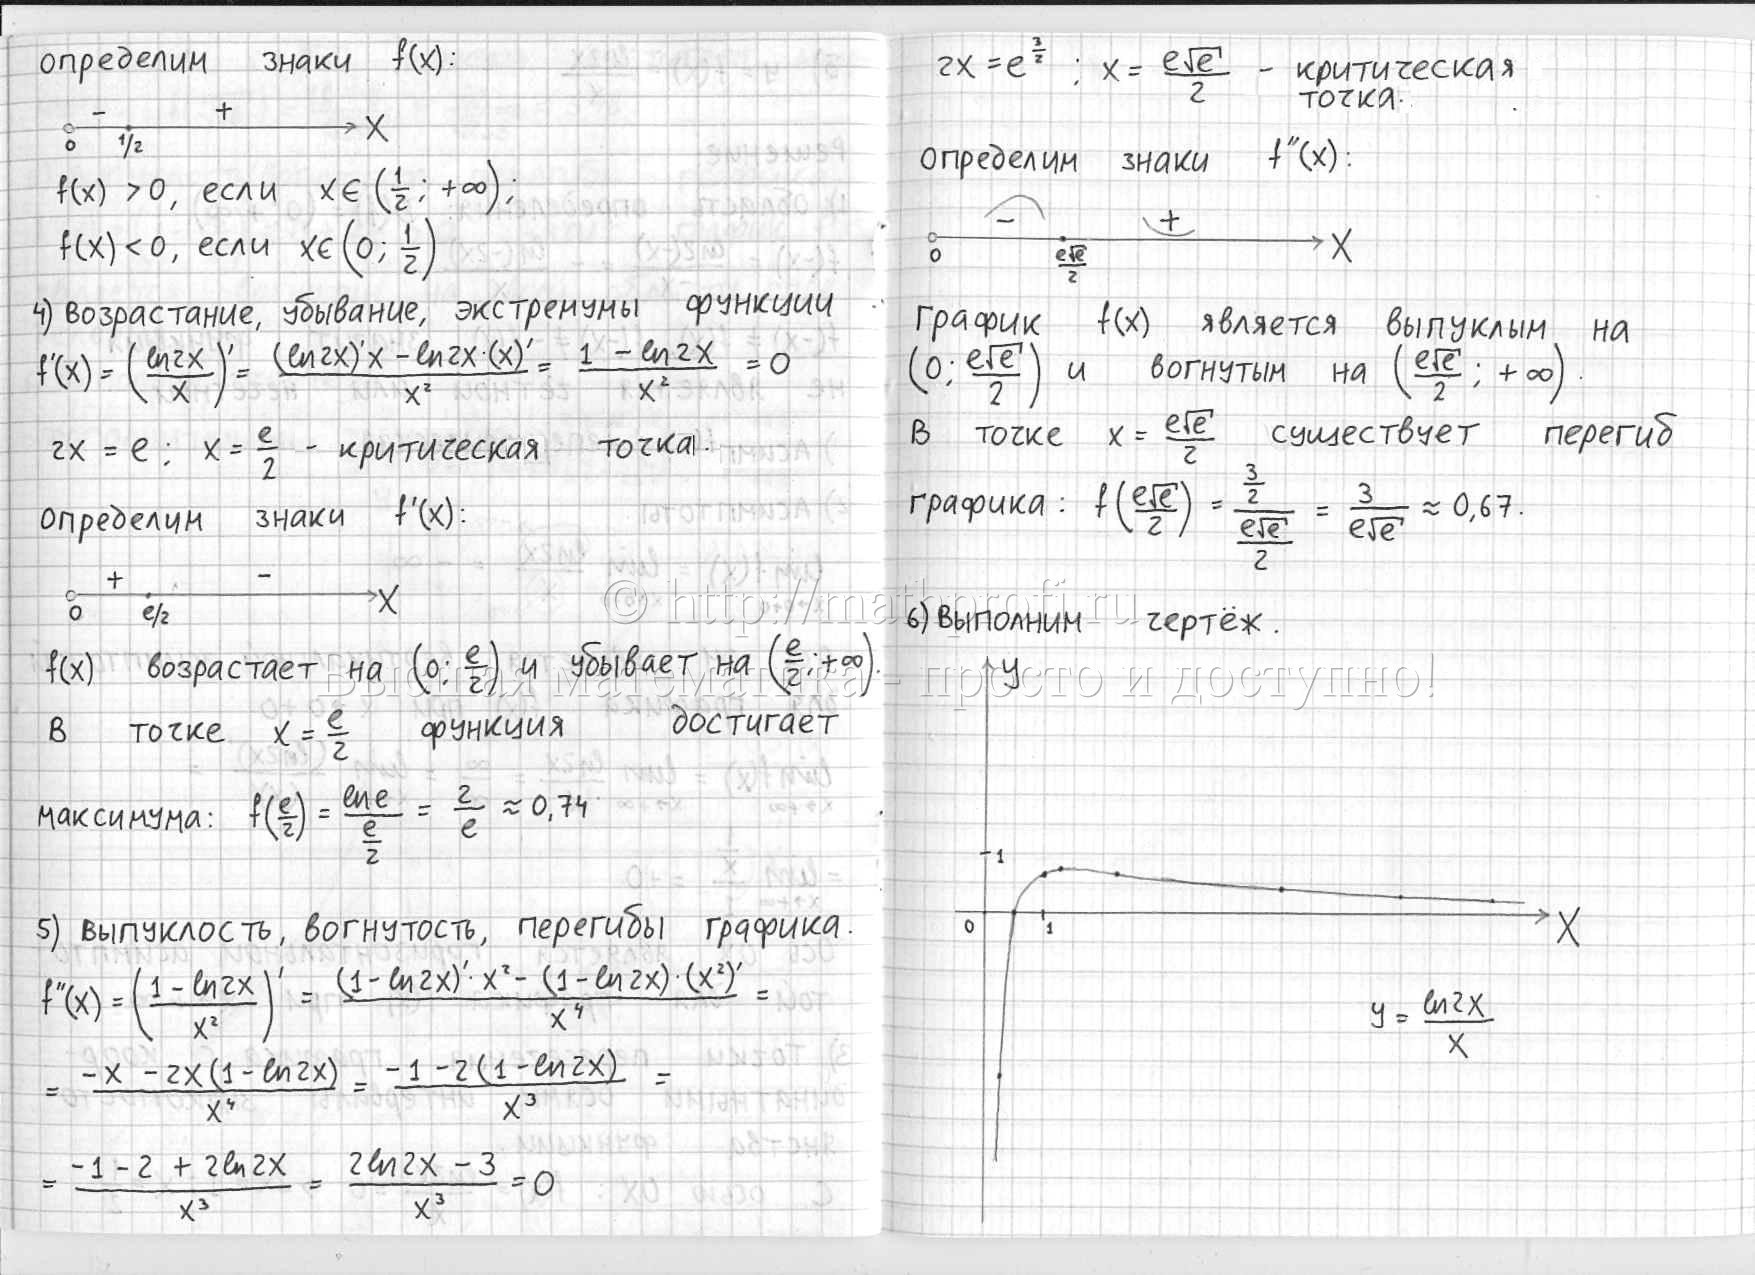 определим знаки f(x):
- +
0 1/2 X
f(x) > 0, если x∈(1/2; +∞);
f(x) < 0, если x∈(0; 1/2)
4) Возрастание, убывание, экстремумы функции
f'(x) = (ln2x/x)' = ((ln2x)'x - ln2x·(x)')/x² = (1 - ln2x)/x² = 0
2x = e; x = e/2 - критическая точка.
определим знаки f'(x):
+ -
0 e/2 X
f(x) возрастает на (0; e/2) и убывает на (e/2; +∞).
В точке x = e/2 функция достигает
максимума: f(e/2) = lne/(e/2) = 2/e ≈ 0,74
5) Выпуклость, вогнутость, перегибы графика.
f''(x) = ((1 - ln2x)/x²)' = ((1 - ln2x)'·x² - (1 - ln2x)·(x²)')/x⁴ =
= (-x - 2x(1 - ln2x))/x⁴ = (-1 - 2(1 - ln2x))/x³ =
= (-1 - 2 + 2ln2x)/x³ = (2ln2x - 3)/x³ = 0
2x = e^(3/2); x = e√e/2 - критическая
точка.
Определим знаки f''(x):
- +
0 e√e/2 X
График f(x) является выпуклым на
(0; e√e/2) и вогнутым на (e√e/2; +∞).
В точке x = e√e/2 существует перегиб
графика: f(e√e/2) = (3/2)/(e√e/2) = 3/(e√e) ≈ 0,67.
© http://mathprofi.ru
6) Выполним чертёж.
Высшая математика - просто и доступно!
y
1
0 1 X
y = ln2x/x